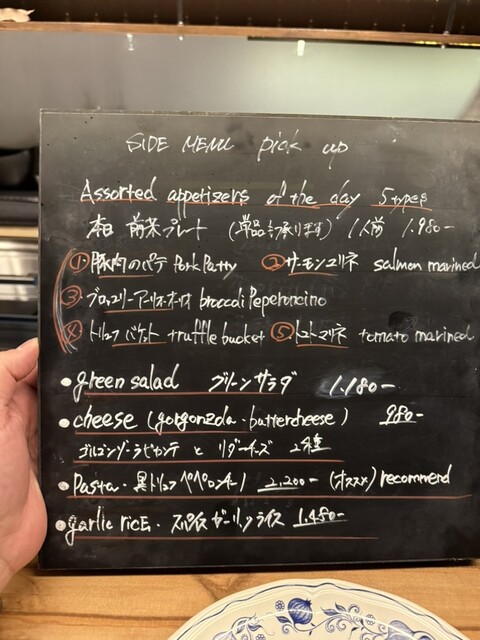 SIDE MENU pick up
Assorted appetizers of the day 5types
本日 前菜プレート (単品も承ります) 1人前 1.980-
① 豚肉のパテ Pork Patty ② サーモンマリネ salmon marined
③ ブロッコリーアーリオ・オーリオ broccoli Peperoncino
④ トリュフバケット truffle bucket ⑤ トマトマリネ tomato marined
• green salad グリーンサラダ 1.180-
• cheese (gorgonzola・buttercheese) 980-
ゴルゴンゾーラピカンテ と リダーチーズ 2種
• Pasta・黒トリュフペペロンチーノ 2,200- (オススメ) recommend
• garlic ricE・スパイスガーリックライス 1.480-